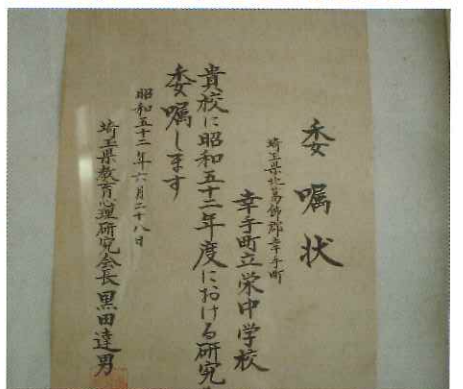 委嘱状
埼玉県北葛飾郡幸手町
幸手町立栄中学校
貴校に昭和五十二年度における研究
委嘱します
昭和五十二年六月二十八日
埼玉県教育心理研究会長 黒田達男